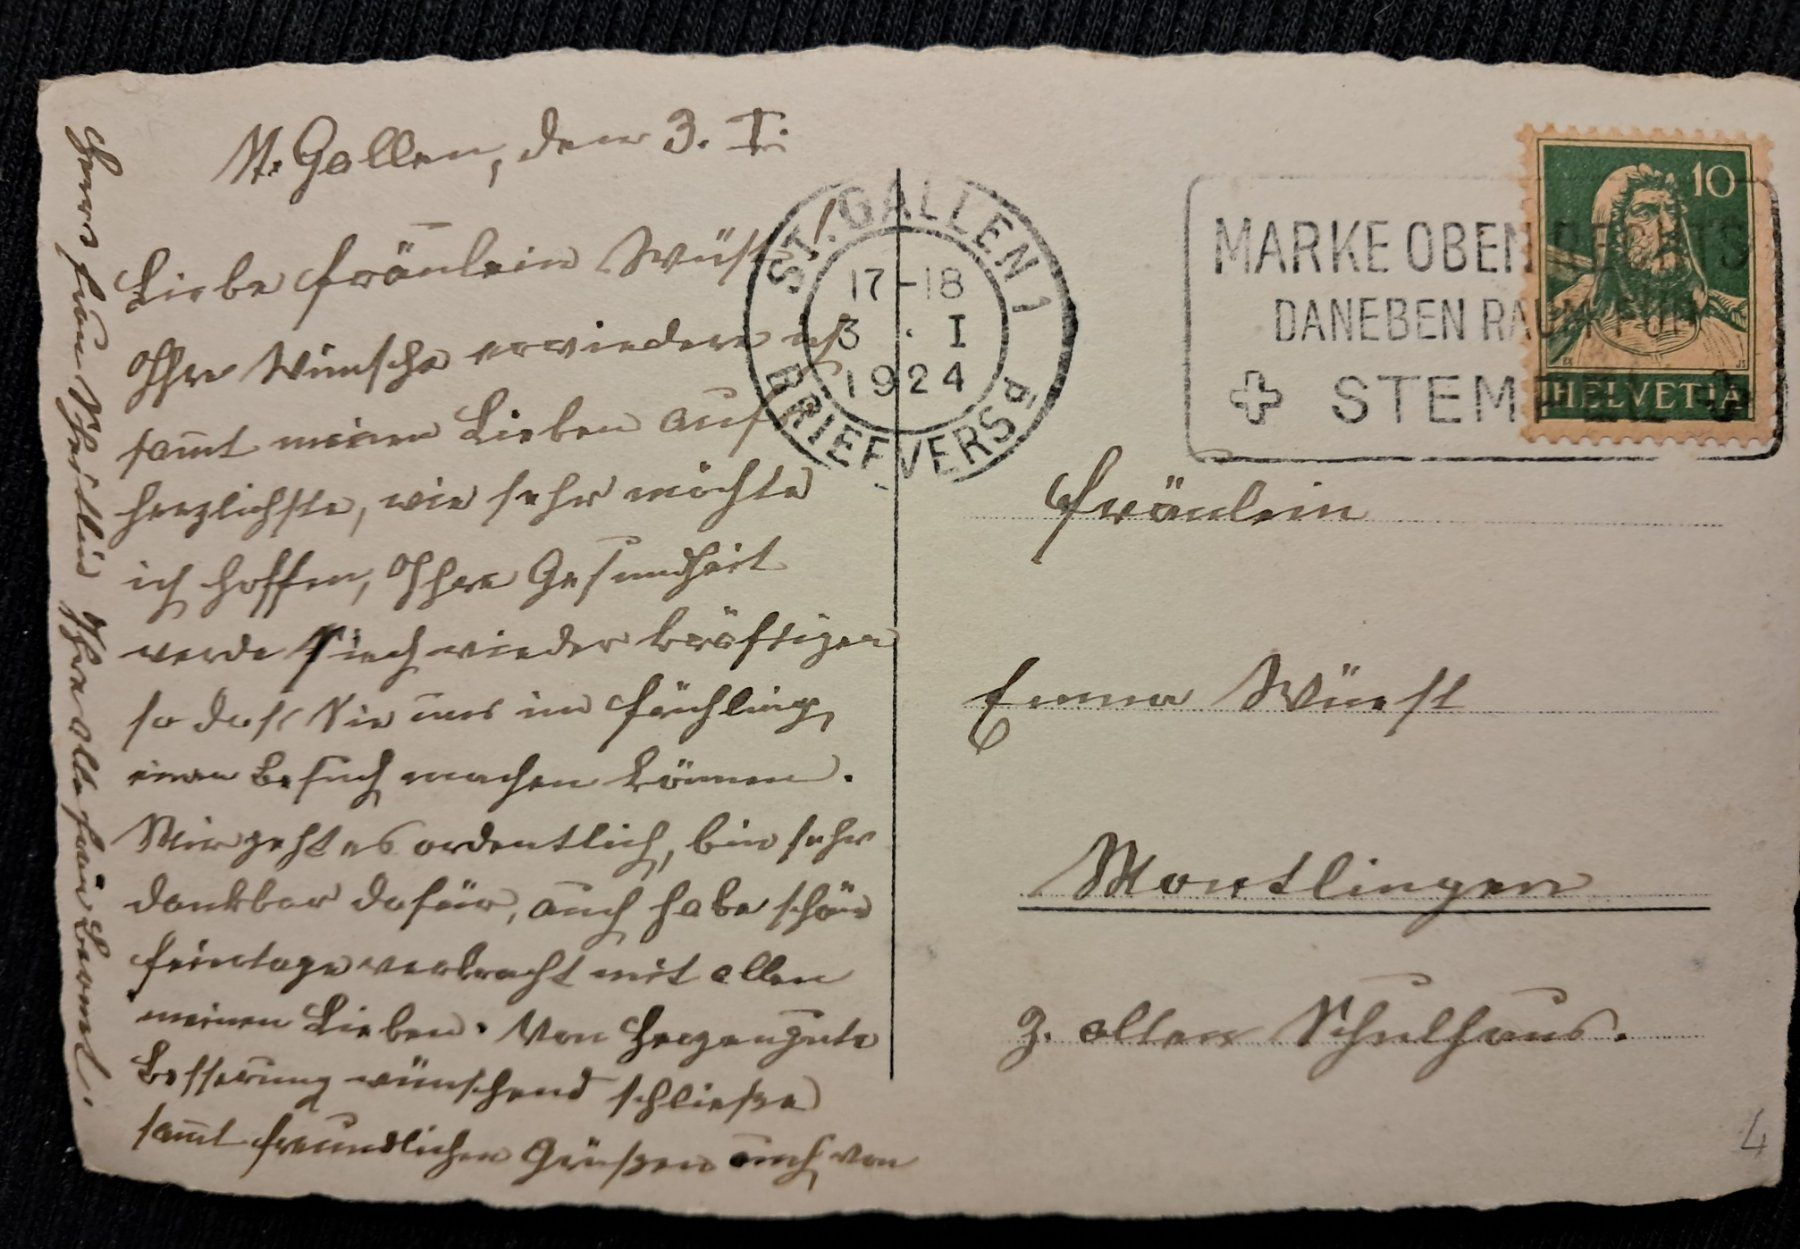 St. Gallen, den 3. I.
Liebe Fräulein Wüst!
Ihre Wünsche erwiedere ich
samt meinen Lieben auf
herzlichste, wie sehr möchte
ich hoffen, Ihre Gesundheit
werde sich wieder kräftigen
so daß Sie uns im Frühling
einen Besuch machen können.
Mir geht es ordentlich, bin sehr
dankbar dafür, auch habe schöne
Feiertage verbracht mit allen
meinen Lieben. Von Herzen gute
Besserung wünschend schließe
samt freundlichen Grüßen auch von
Frau Ihre alte Frau
ST. GALLEN 1
17-18
3 . I
1924
BRIEFVERSD.
MARKE OBEN RECHTS
DANEBEN RAUM FÜR
STEMPEL
10
HELVETIA
Fräulein
Emma Wüest
Montlingen
z. alten Schulhaus.
4